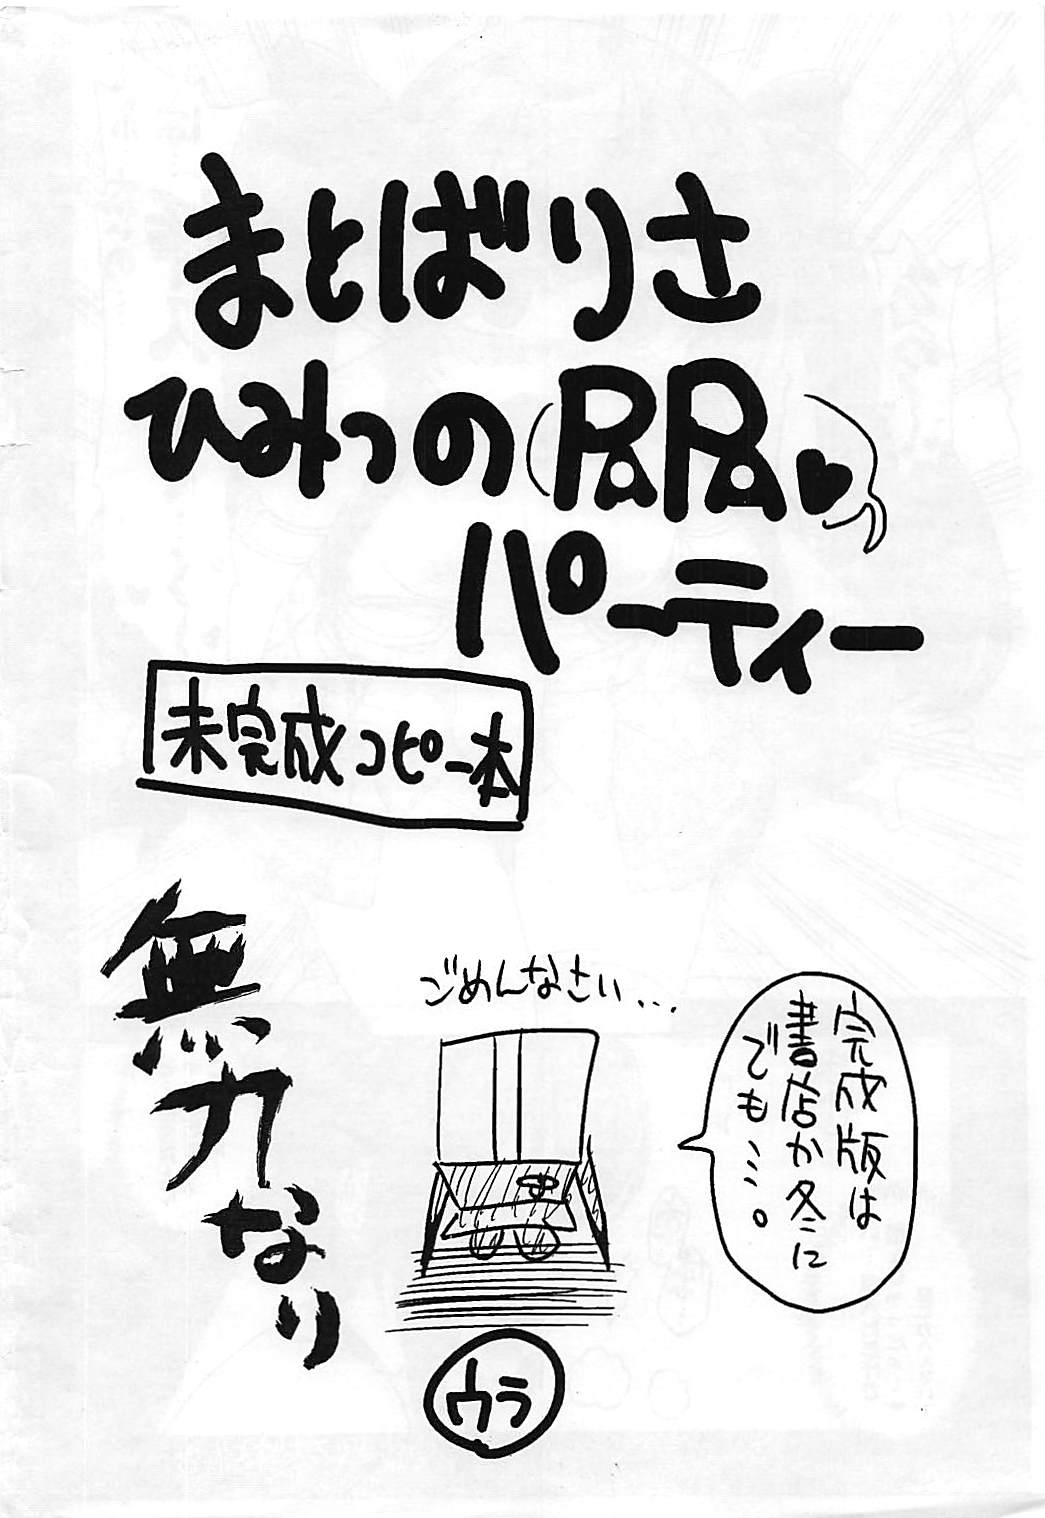 まとばりさ
ひみつのPAPA♥
パーティー
未完成コピー本
無力なり
ごめんなさい...
完成版は
書店か冬に
でも…。
ウラ